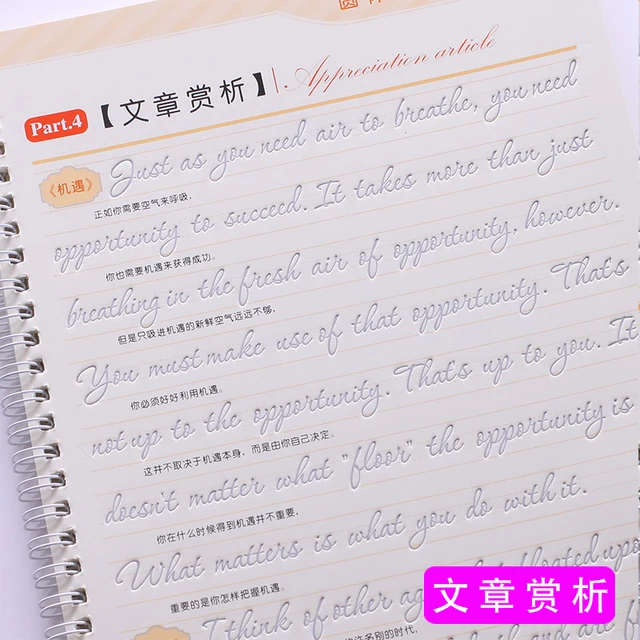 Part.4 【文章赏析】 Appreciation article
《机遇》 Just as you need air to breathe, you need
正如你需要空气来呼吸,
opportunity to succeed. It takes more than just
你也需要机遇来获得成功。
breathing in the fresh air of opportunity, however.
但是只吸进机遇的新鲜空气远远不够,
You must make use of that opportunity. That's
你必须好好利用机遇。
not up to the opportunity. That's up to you. It
这并不取决于机遇本身，而是由你自己决定。
doesn't matter what "floor" the opportunity is
你在什么时候得到机遇并不重要,
on. What matters is what you do with it.
重要的是你怎样把握机遇。
I think of other ages that floated upo
许多别的时代,
文章赏析